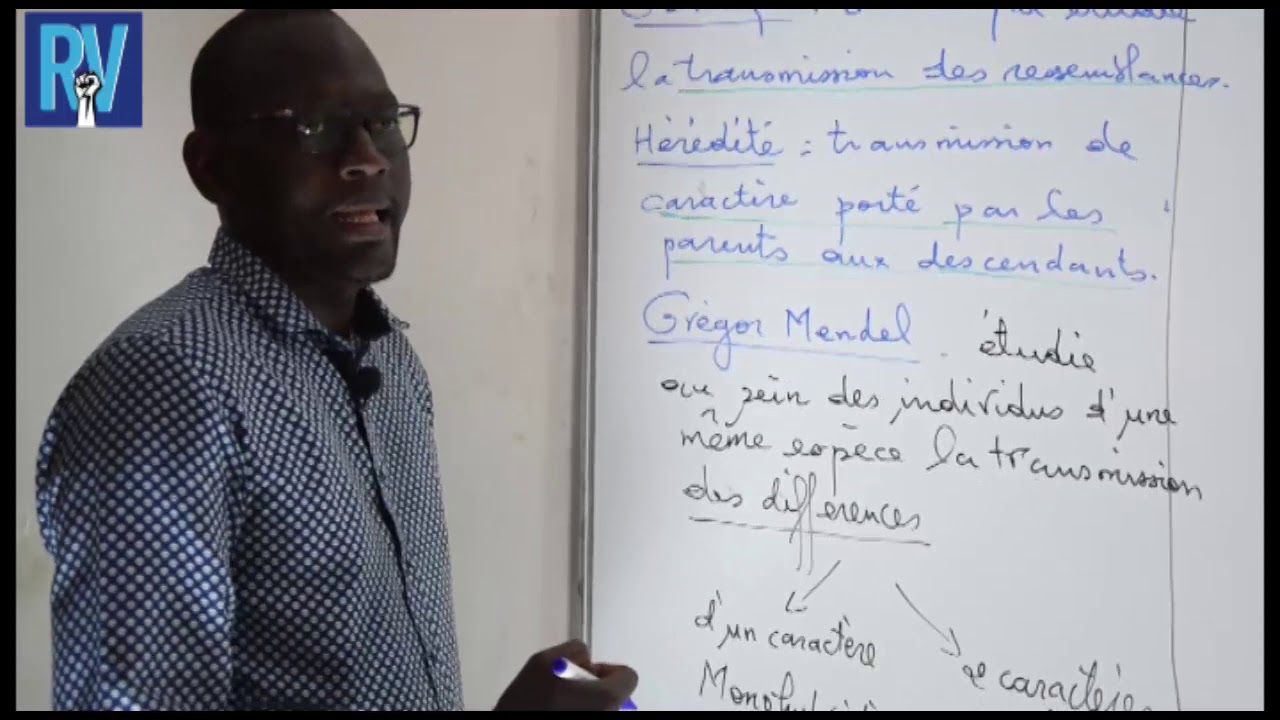 RV
la transmission des ressemblances.
Hérédité : transmission de
caractère porté par les
parents aux descendants.
Grégor Mendel. étudie
au sein des individus d'une
même espèce la transmission
des différences
d'un caractère
2 caractères